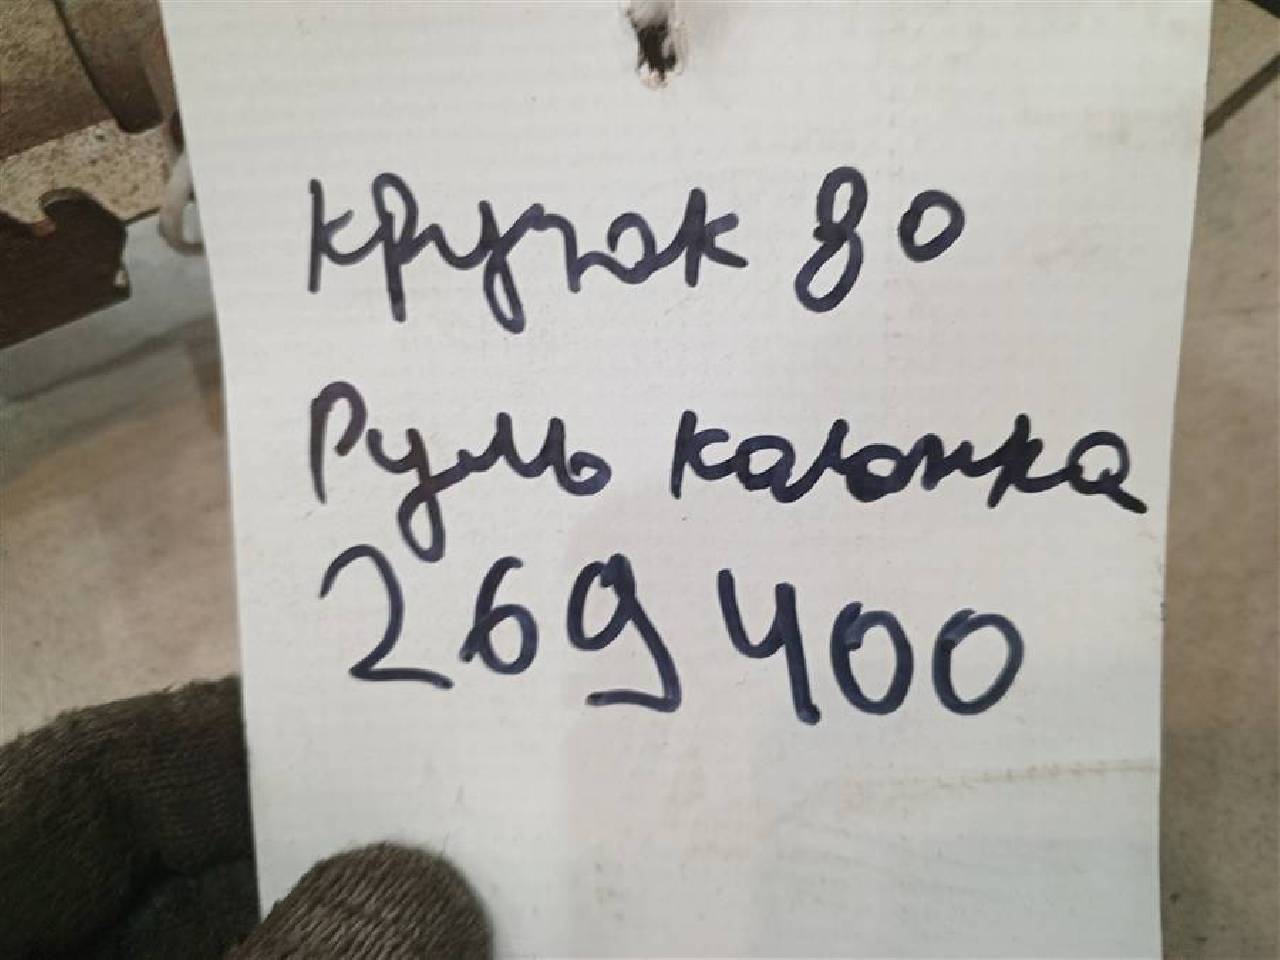 крузак 80
Руль калонка
269400